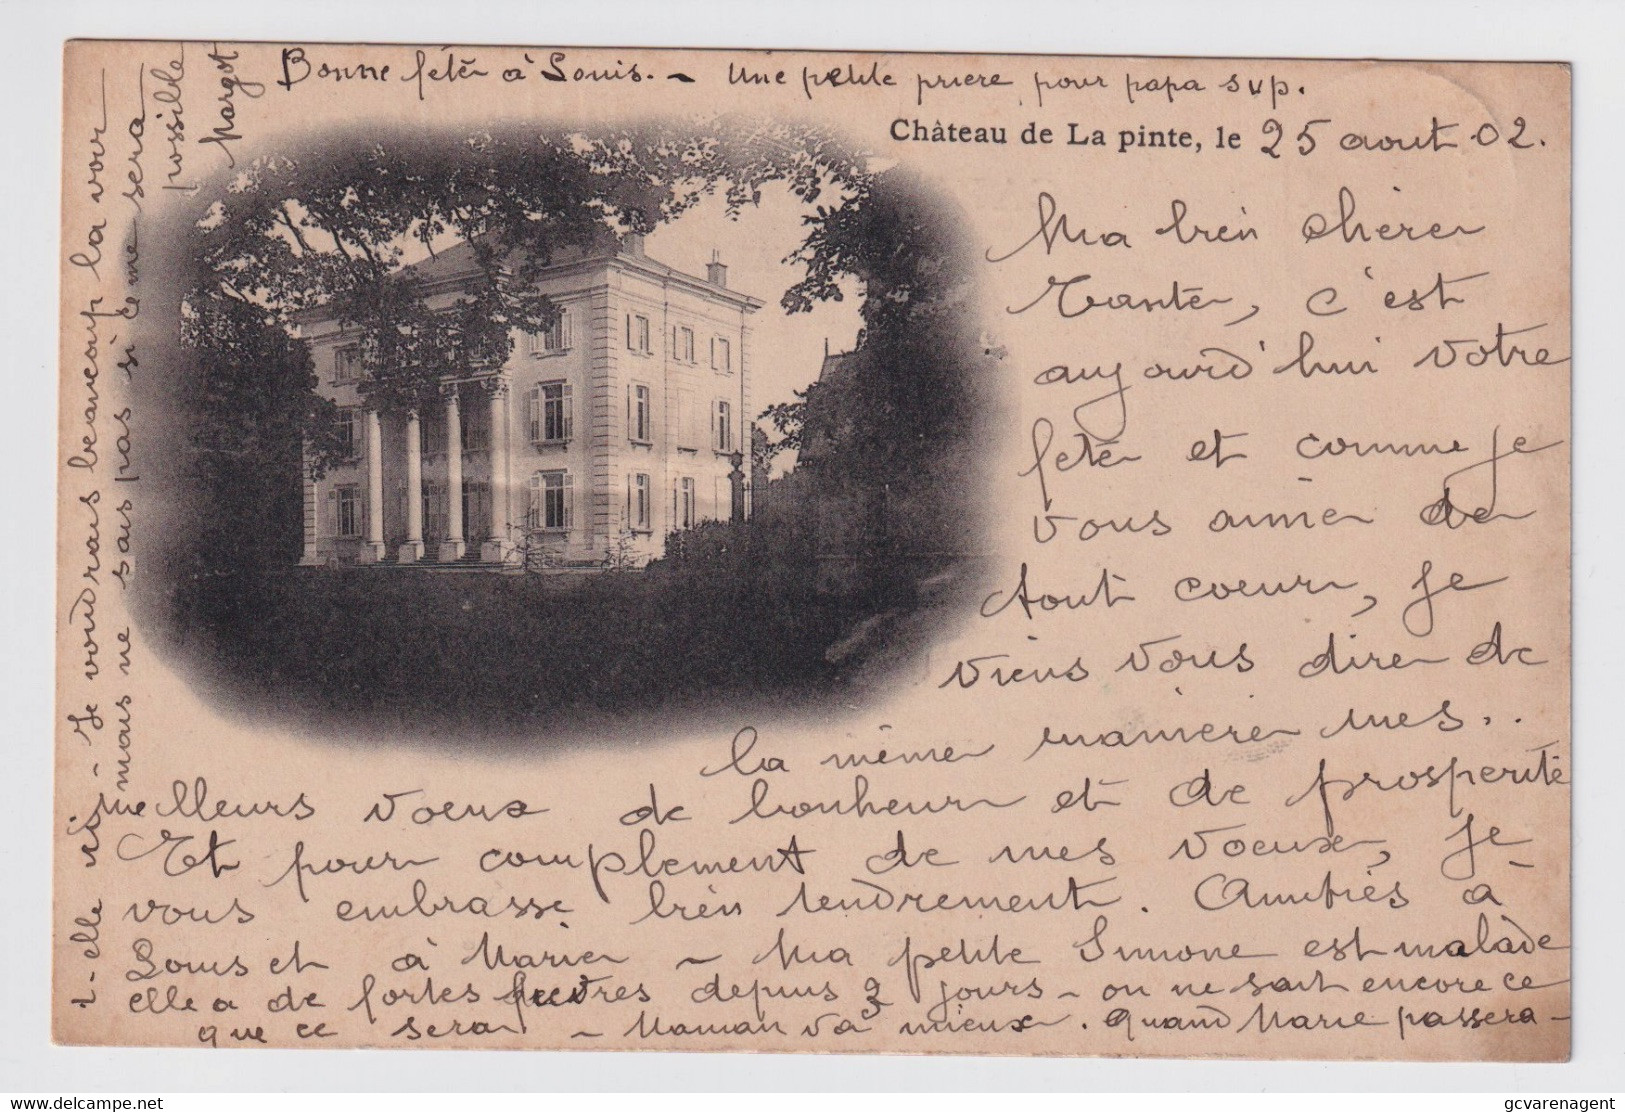 Bonne fête à Louis. - Une petite priere pour papa svp.
Château de La pinte, le 25 aout 02.
Ma bien chère
Tante, c'est
aujourd'hui votre
fete et comme je
vous aime de
tout coeur, je
viens vous dire de
la même maniere mes..
meilleurs voeux de bonheur et de prosperité
Et pour complement de mes voeux, je
vous embrasse bien tendrement. Amitiés à
Louis et à Marie - Ma petite Simone est malade
elle a de fortes fievres depuis 3 jours - on ne sait encore ce
que ce sera - Maman va mieux. Quand Marie passera-
t-elle ici - Je voudrais beaucoup la voir
mais ne sais pas si ce me sera
possible
Margot
www.delcampe.net
gcvarenagent